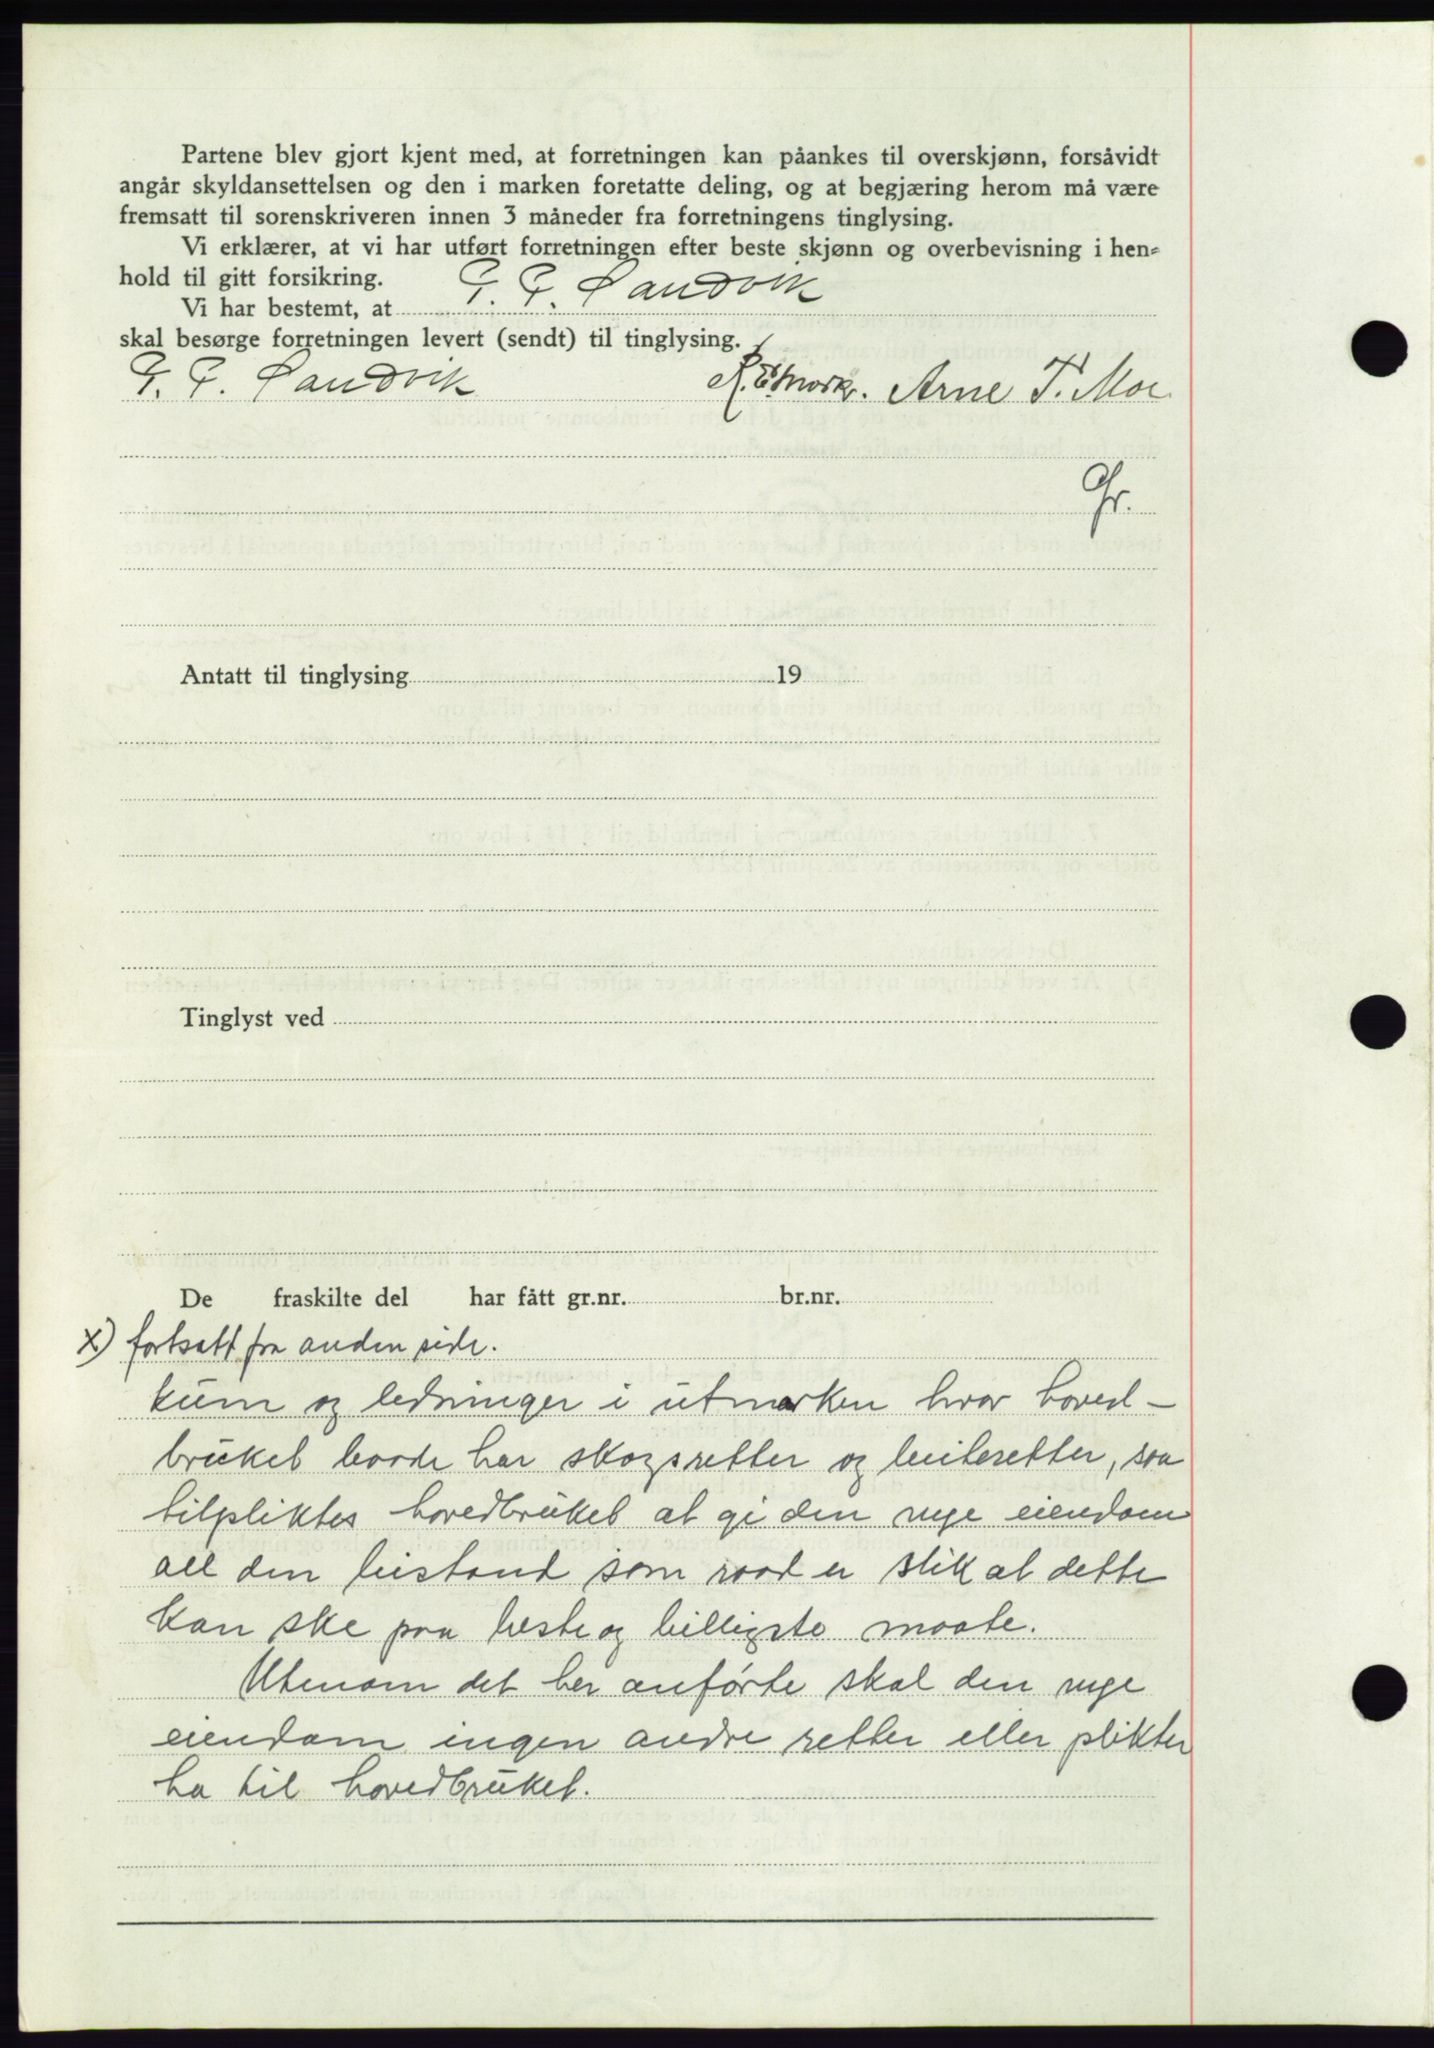 Partene blev gjort kjent med, at forretningen kan påankes til overskjønn, forsåvidt
angår skyldansettelsen og den i marken foretatte deling, og at begjæring herom må være
fremsatt til sorenskriveren innen 3 måneder fra forretningens tinglysing.
Vi erklærer, at vi har utført forretningen efter beste skjønn og overbevisning i hen-
hold til gitt forsikring.
Vi har bestemt, at G. G. Sandvik
skal besørge forretningen levert (sendt) til tinglysing.
G. G. Sandvik R. E. Mork. Arne T. Moe
Gr.
Antatt til tinglysing 19
Tinglyst ved
De fraskilte del har fått gr.nr. br.nr.
X) fortsatt fra anden side.
kum og ledninger i utmarken hvor hoved-
bruket baade har skogsretter og beiteretter, saa
tilpliktes hovedbruket at gi den nye eiendom
all den bistand som raad er slik at dette
kan ske paa beste og billigste maate.
Utenom det her anførte skal den nye
eiendom ingen andre retter eller plikter
ha til hovedbruket.